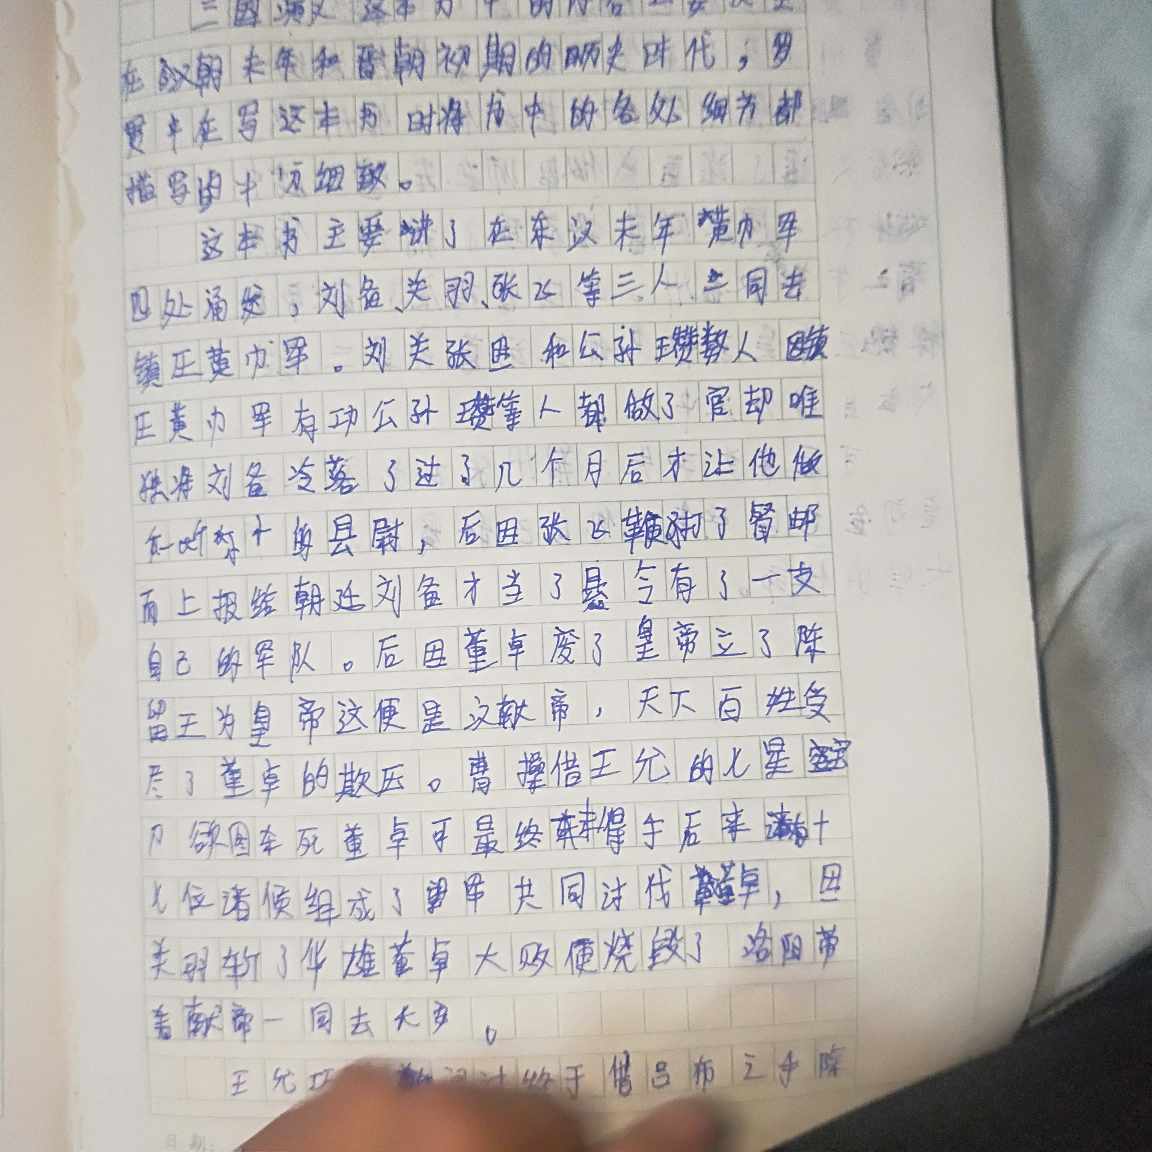 三国演义这本书中的内容主要
在汉朝末年和晋朝初期的历史时代，罗
贯中在写这本书时将书中的各处细节都
描写的十 细致。
这本书主要讲了在东汉末年黄巾军
四处涌 ，刘备、关羽、张飞等三人 同去
镇压黄巾军。刘关张因和公孙瓒数人因镇
压黄巾军有功公孙瓒等人都做了官却唯
独将刘备冷落了过了几个月后才让他做
的县尉，后因张飞鞭打了督邮
而上报给朝廷刘备才当了县令有了一支
自己的军队。后因董卓废了皇帝立了陈
留王为皇帝这便是汉献帝，天下百姓受
尽了董卓的欺压。曹操借王允的七星宝
刀欲图 死董卓可最终未得手后来 十
七位诸侯组成了 军共同讨伐董卓，因
关羽斩了华雄董卓大败便烧毁了洛阳带
着献帝一同去长安。
王允巧 终于借吕布之手除
日期: